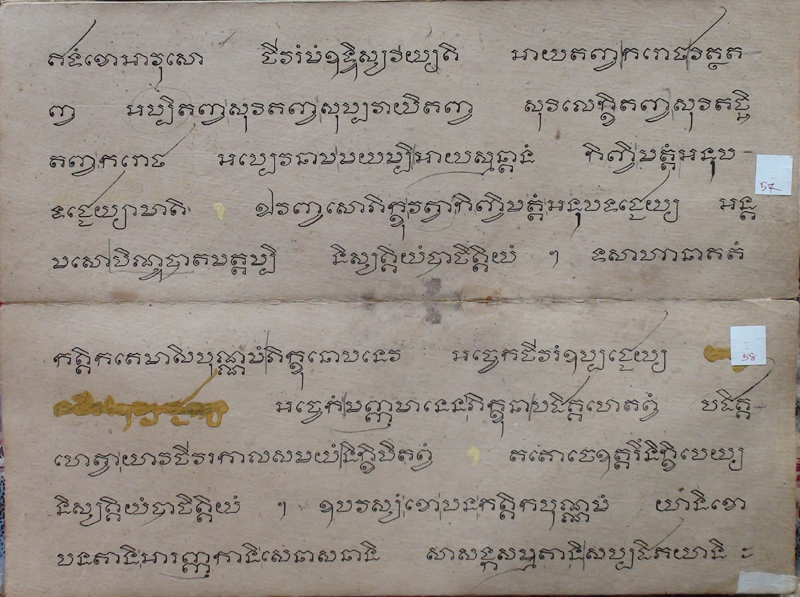 ឥទំខោអាវុសោ ចីវរំមំឧទ្ទិស្សវិយ្យតិ អាយតញ្ចករោថវិត្ថត
ញ្ច អប្បិតញ្ចសុវិតញ្ចសុប្បវាយិតញ្ច សុវិលេក្ខិតញ្ចសុវិតច្ឆិ
តញ្ចករោថ អប្បេវនាមមយម្បិអាយស្មន្តានំ កិញ្ចិមត្តំអនុប
ទជ្ជេយ្យាមាតិ ឯវញ្ចសោភិក្ខុវត្វាកិញ្ចិមត្តំអនុបទជ្ជេយ្យ អន្ត
មសោបិណ្ឌបាតមត្តម្បិ និស្សគ្គិយំបាចិត្តិយំ ។ ទសាហានាគតំ
កត្តិកតេមាសិបុណ្ណមំភិក្ខុនោបនេវ អច្ចេកចីវរំឧប្បជ្ជេយ្យ
អច្ចេកំមញ្ញមានេនភិក្ខុនាបដិគ្គហេតព្វំ បដិគ្គ
ហេត្វាយាវចីវរកាលសមយំនិក្ខិបិតព្វំ តតោចេឧត្តរឹនិក្ខិបេយ្យ
និស្សគ្គិយំបាចិត្តិយំ ។ ឧបវស្សំខោបនកត្តិកបុណ្ណមំ យានិខោ
បនតានិអារញ្ញកានិសេនាសនានិ សាសង្កសម្មតានិសប្បដិភយានិ
57
58